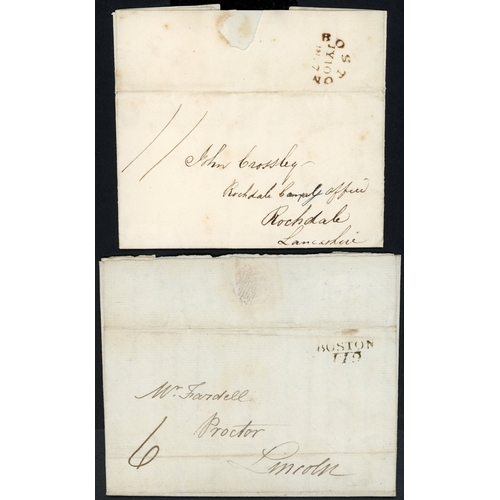 BOSTON
JY 10
11
John Crossley
Rochdale Canal Office
Rochdale
Lancashire
BOSTON
119
Mr. Fardell
Proctor
6
Lincoln